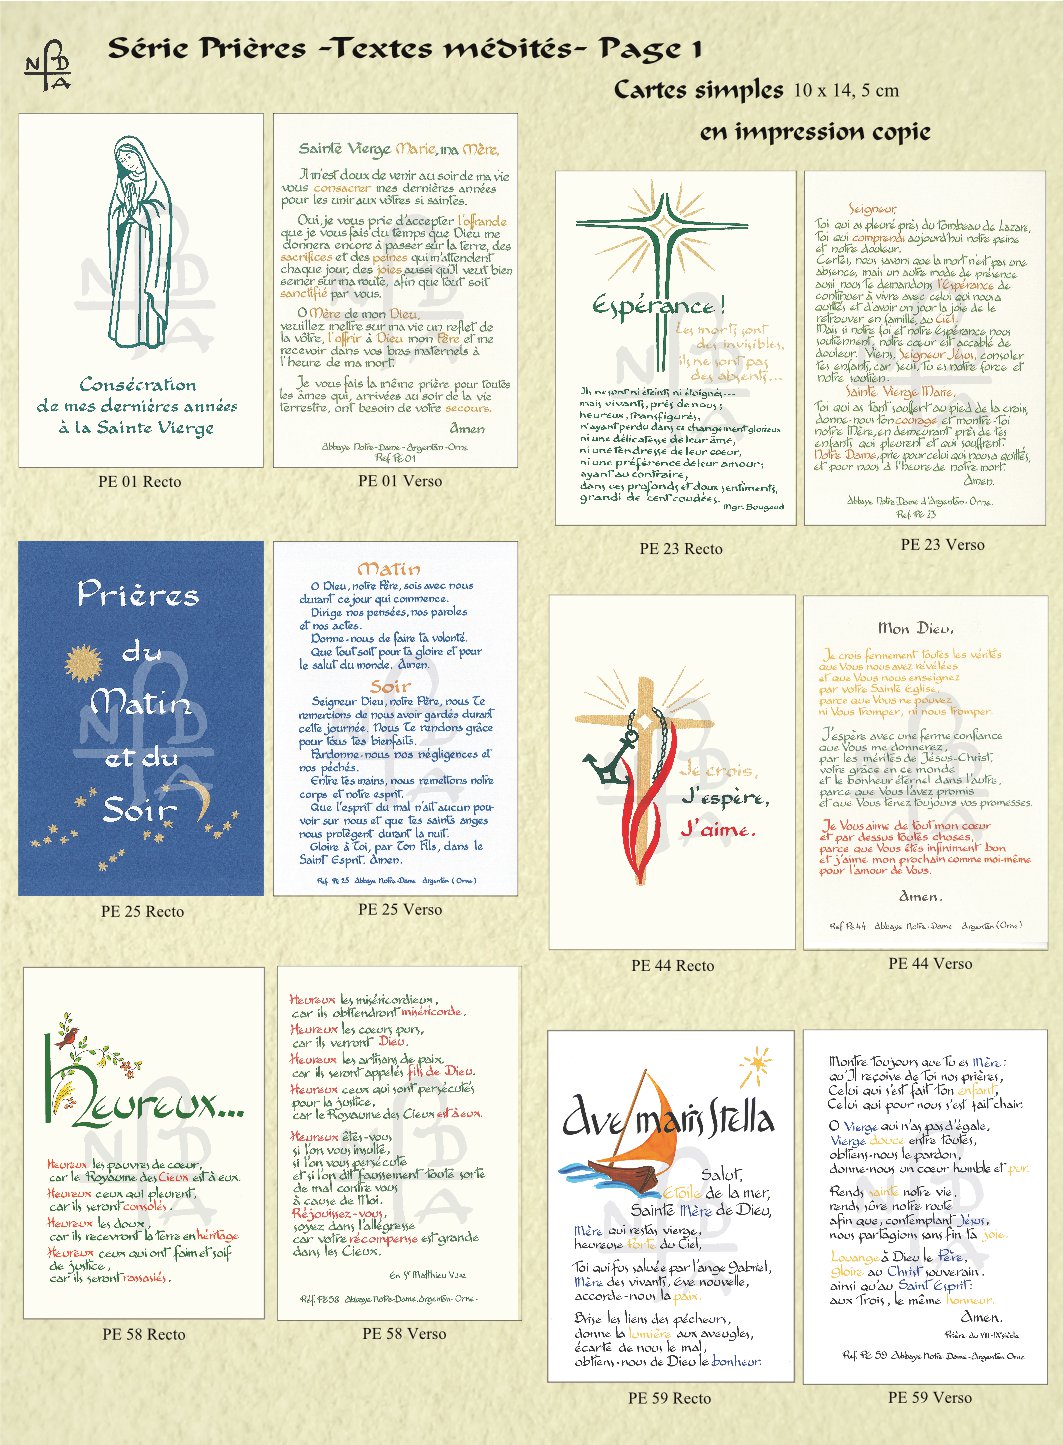 N D A
Série Prières -Textes médités- Page 1
Cartes simples 10 x 14, 5 cm
en impression copie
Consécration
de mes dernières années
à la Sainte Vierge
PE 01 Recto
Sainte Vierge Marie, ma Mère,
Il m'est doux de venir au soir de ma vie
vous consacrer mes dernières années
pour les unir aux vôtres si saintes.
Oui, je vous prie d'accepter l'offrande
que je vous fais du temps que Dieu me
donnera encore à passer sur la terre, des
sacrifices et des peines qui m'attendent
chaque jour, des joies aussi qu'Il veut bien
semer sur ma route, afin que tout soit
sanctifié par vous.
O Mère de mon Dieu,
veuillez mettre sur ma vie un reflet de
la vôtre, l'offrir à Dieu mon Père et me
recevoir dans vos bras maternels à
l'heure de ma mort.
Je vous fais la même prière pour toutes
les âmes qui, arrivées au soir de la vie
terrestre, ont besoin de votre secours.
Amen
Abbaye Notre-Dame-Argentan-Orne.
Réf PE 01
PE 01 Verso
Espérance !
Les morts sont
des invisibles,
ils ne sont pas
des absents...
Ils ne sont ni éteints ni éloignés...
mais vivants, près de nous ;
heureux, transfigurés,
n'ayant perdu dans ce changement glorieux
ni une délicatesse de leur âme,
ni une tendresse de leur coeur,
ni une préférence de leur amour ;
ayant au contraire,
dans ces profonds et doux sentiments,
grandi de cent coudées.
Mgr. Bougaud
PE 23 Recto
Seigneur,
Toi qui as pleuré près du tombeau de Lazare,
Toi qui comprends aujourd'hui notre peine
et notre douleur.
Certes, nous savons que la mort n'est pas une
absence, mais un autre mode de présence
aussi nous te demandons l'Espérance de
continuer à vivre avec celui qui nous a
quittés et d'avoir un jour la joie de le
retrouver en famille au Ciel.
Mais si notre foi et notre Espérance nous
soutiennent, notre cœur est accablé de
douleur. Viens, Seigneur Jésus, consoler
tes enfants, car seul, Tu es notre force et
notre soutien.
Sainte Vierge Marie,
Toi qui as tant souffert au pied de la croix,
donne-nous ton courage et montre-toi
notre Mère, en demeurant près de tes
enfants qui pleurent et qui souffrent.
Notre Dame, prie pour celui qui nous a quittés,
et pour nous à l'heure de notre mort.
Amen.
Abbaye Notre Dame d'Argentan-Orne.
Ref. PE 23
PE 23 Verso
Prières
du
Matin
et du
Soir
PE 25 Recto
Matin
O Dieu, notre Père, sois avec nous
durant ce jour qui commence.
Dirige nos pensées, nos paroles
et nos actes.
Donne-nous de faire ta volonté.
Que tout soit pour ta gloire et pour
le salut du monde. Amen.
Soir
Seigneur Dieu, notre Père, nous Te
remercions de nous avoir gardés durant
cette journée. Nous Te rendons grâce
pour tous tes bienfaits.
Pardonne-nous nos négligences et
nos péchés.
Entre tes mains, nous remettons notre
corps et notre esprit.
Que l'esprit du mal n'ait aucun pou-
voir sur nous et que tes saints anges
nous protègent durant la nuit.
Gloire à Toi, par Ton Fils, dans le
Saint Esprit. Amen.
Réf. PE 25 Abbaye Notre-Dame Argentan (Orne)
PE 25 Verso
Je crois,
J'espère,
J'aime.
PE 44 Recto
Mon Dieu,
Je crois fermement toutes les vérités
que Vous nous avez révélées
et que Vous nous enseignez
par votre Sainte Église,
parce que Vous ne pouvez
ni Vous tromper, ni nous tromper.
J'espère avec une ferme confiance
que Vous me donnerez,
par les mérites de Jésus-Christ,
votre grâce en ce monde
et le bonheur éternel dans l'autre,
parce que Vous l'avez promis
et que Vous tenez toujours vos promesses.
Je Vous aime de tout mon cœur
et par dessus toutes choses,
parce que Vous êtes infiniment bon
et j'aime mon prochain comme moi-même
pour l'amour de Vous.
Amen.
Réf PE 44 Abbaye Notre-Dame Argentan (Orne)
PE 44 Verso
Heureux...
Heureux les pauvres de cœur,
car le Royaume des Cieux est à eux.
Heureux ceux qui pleurent,
car ils seront consolés.
Heureux les doux,
car ils recevront la terre en héritage
Heureux ceux qui ont faim et soif
de justice,
car ils seront rassasiés.
PE 58 Recto
Heureux les miséricordieux,
car ils obtiendront miséricorde.
Heureux les cœurs purs,
car ils verront Dieu.
Heureux les artisans de paix,
car ils seront appelés fils de Dieu.
Heureux ceux qui sont persécutés
pour la justice,
car le Royaume des Cieux est à eux.
Heureux êtes-vous
si l'on vous insulte,
si l'on vous persécute
et si l'on dit faussement toute sorte
de mal contre vous
à cause de Moi.
Réjouissez-vous,
soyez dans l'allégresse
car votre récompense est grande
dans les Cieux.
Ev. St Matthieu V.3.12
Réf. PE58 Abbaye Notre-Dame. Argentan-Orne.
PE 58 Verso
Ave maris Stella
Salut,
Etoile de la mer,
Sainte Mère de Dieu,
Mère qui restas vierge,
heureuse Porte du Ciel,
Toi qui fus saluée par l'ange Gabriel,
Mère des vivants, Ève nouvelle,
accorde-nous la paix.
Brise les liens des pécheurs,
donne la lumière aux aveugles,
écarte de nous le mal,
obtiens-nous de Dieu le bonheur.
PE 59 Recto
Montre toujours que tu es Mère :
qu'Il reçoive de Toi nos prières,
Celui qui s'est fait ton enfant,
Celui qui pour nous s'est fait chair.
O Vierge qui n'as pas d'égale,
Vierge douce entre toutes,
obtiens-nous le pardon,
donne-nous un cœur humble et pur.
Rends sainte notre vie.
rends sûre notre route
afin que, contemplant Jésus,
nous partagions sans fin ta joie.
Louange à Dieu le Père,
gloire au Christ souverain.
ainsi qu'au Saint Esprit:
aux Trois, le même honneur.
Amen.
Prière du VIII-IXsiècle
Réf. PE 59 Abbaye Notre Dame-Argentan Orne
PE 59 Verso